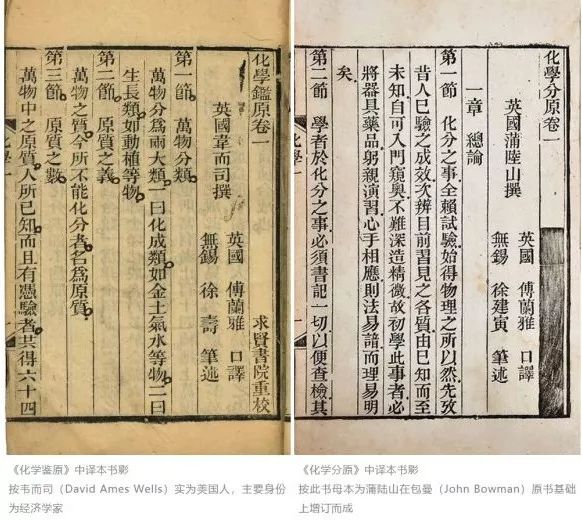 化學鑑原卷一
求賢書院重校
英國韋而司撰
英國 傅蘭雅 口譯
無錫 徐壽 筆述
第一節 萬物分類
萬物分爲兩大類。一曰化成類如金土氣水等物。一曰
生長類如動植等物。
第二節 原質之義
萬物之質。今所不能化分者。名爲原質。
第三節 原質之數
萬物中之原質。人所已知。而且有憑驗者。共得六十四
化學一
化學分原卷一
英國蒲陸山撰
英國 傅蘭雅 口譯
無錫 徐建寅 筆述
一章 總論
第一節 化分之事全賴試驗始得物理之所以然先攷
昔人已驗之成效次辨目前習見之各質由已知而至
未知自可入門窺奧不難深造精微故初學此事者必
將器具藥品躬親演習心手相應則法易諳而理易明
矣
第二節 學者於化分之事必須書記一切以便查檢其
《化学鉴原》中译本书影
按韦而司（David Ames Wells）实为美国人，主要身份
为经济学家
《化学分原》中译本书影
按此书母本为蒲陆山在包曼（John Bowman）原书基础
上增订而成